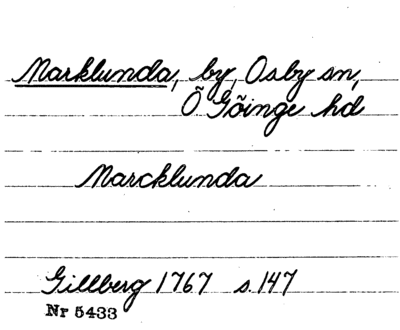 Marklunda, by, Osby sn,
Ö Göinge hd
Marcklunda
Gillberg 1767 s. 147
Nr 5433